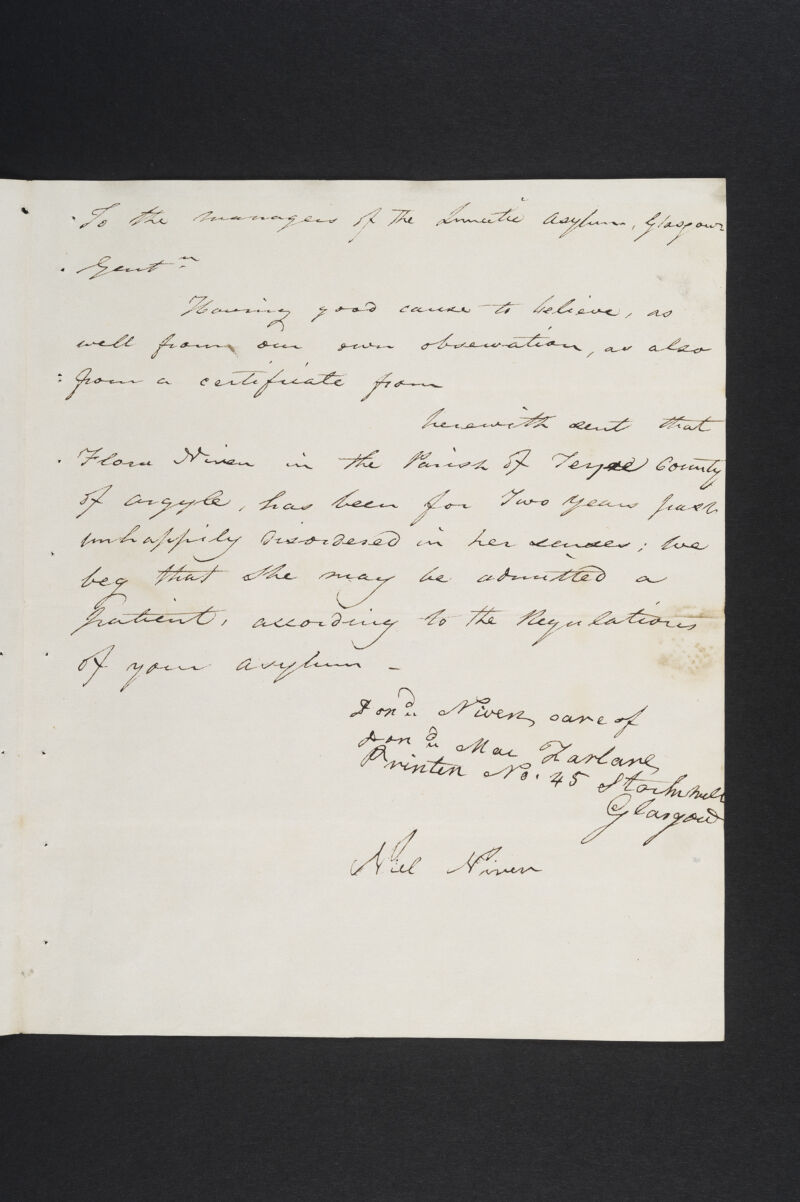 To the managers of the Lunatic Asylum, Glasgow
Gentn
Having good cause to believe, as
well from our own observation, as also
from a certificate from
herewith sent that
Flora Niven in the Parish of County
of argyle, has been for Two years past
unhappily disordered in her senses; we
beg that she may be admitted a
patient, according to the Regulations
of your asylum –
Dond Niven care of
Dond Mac Farlane
Printer No. 45 Stockwell
Glasgow
Niel Niven